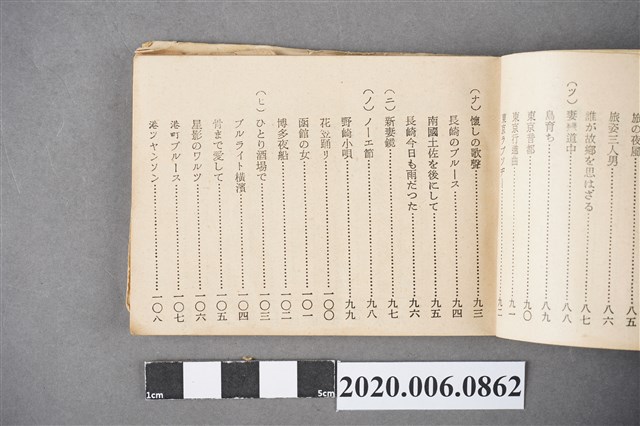 旅の夜風……八五
旅姿三人男……八六
誰が故郷を思はざる……八七
(ツ) 妻恋道中……八八
島育ち……八九
東京音頭……九〇
東京行進曲……九一
(ナ) 懐しの歌聲……九三
長崎のブルース……九四
南國土佐を後にして……九五
長崎今日も雨だつた……九六
(ニ) 新妻鏡……九七
(ノ) ノーエ節……九八
野崎小唄……九九
花笠踊り……一〇〇
函館の女……一〇一
博多夜船……一〇二
(ヒ) ひとり酒場で……一〇三
ブルライト横濱……一〇四
骨まで愛して……一〇五
星影のワルツ……一〇六
港町ブルース……一〇七
港シヤンソン……一〇八
1cm
5cm
2020.006.0862